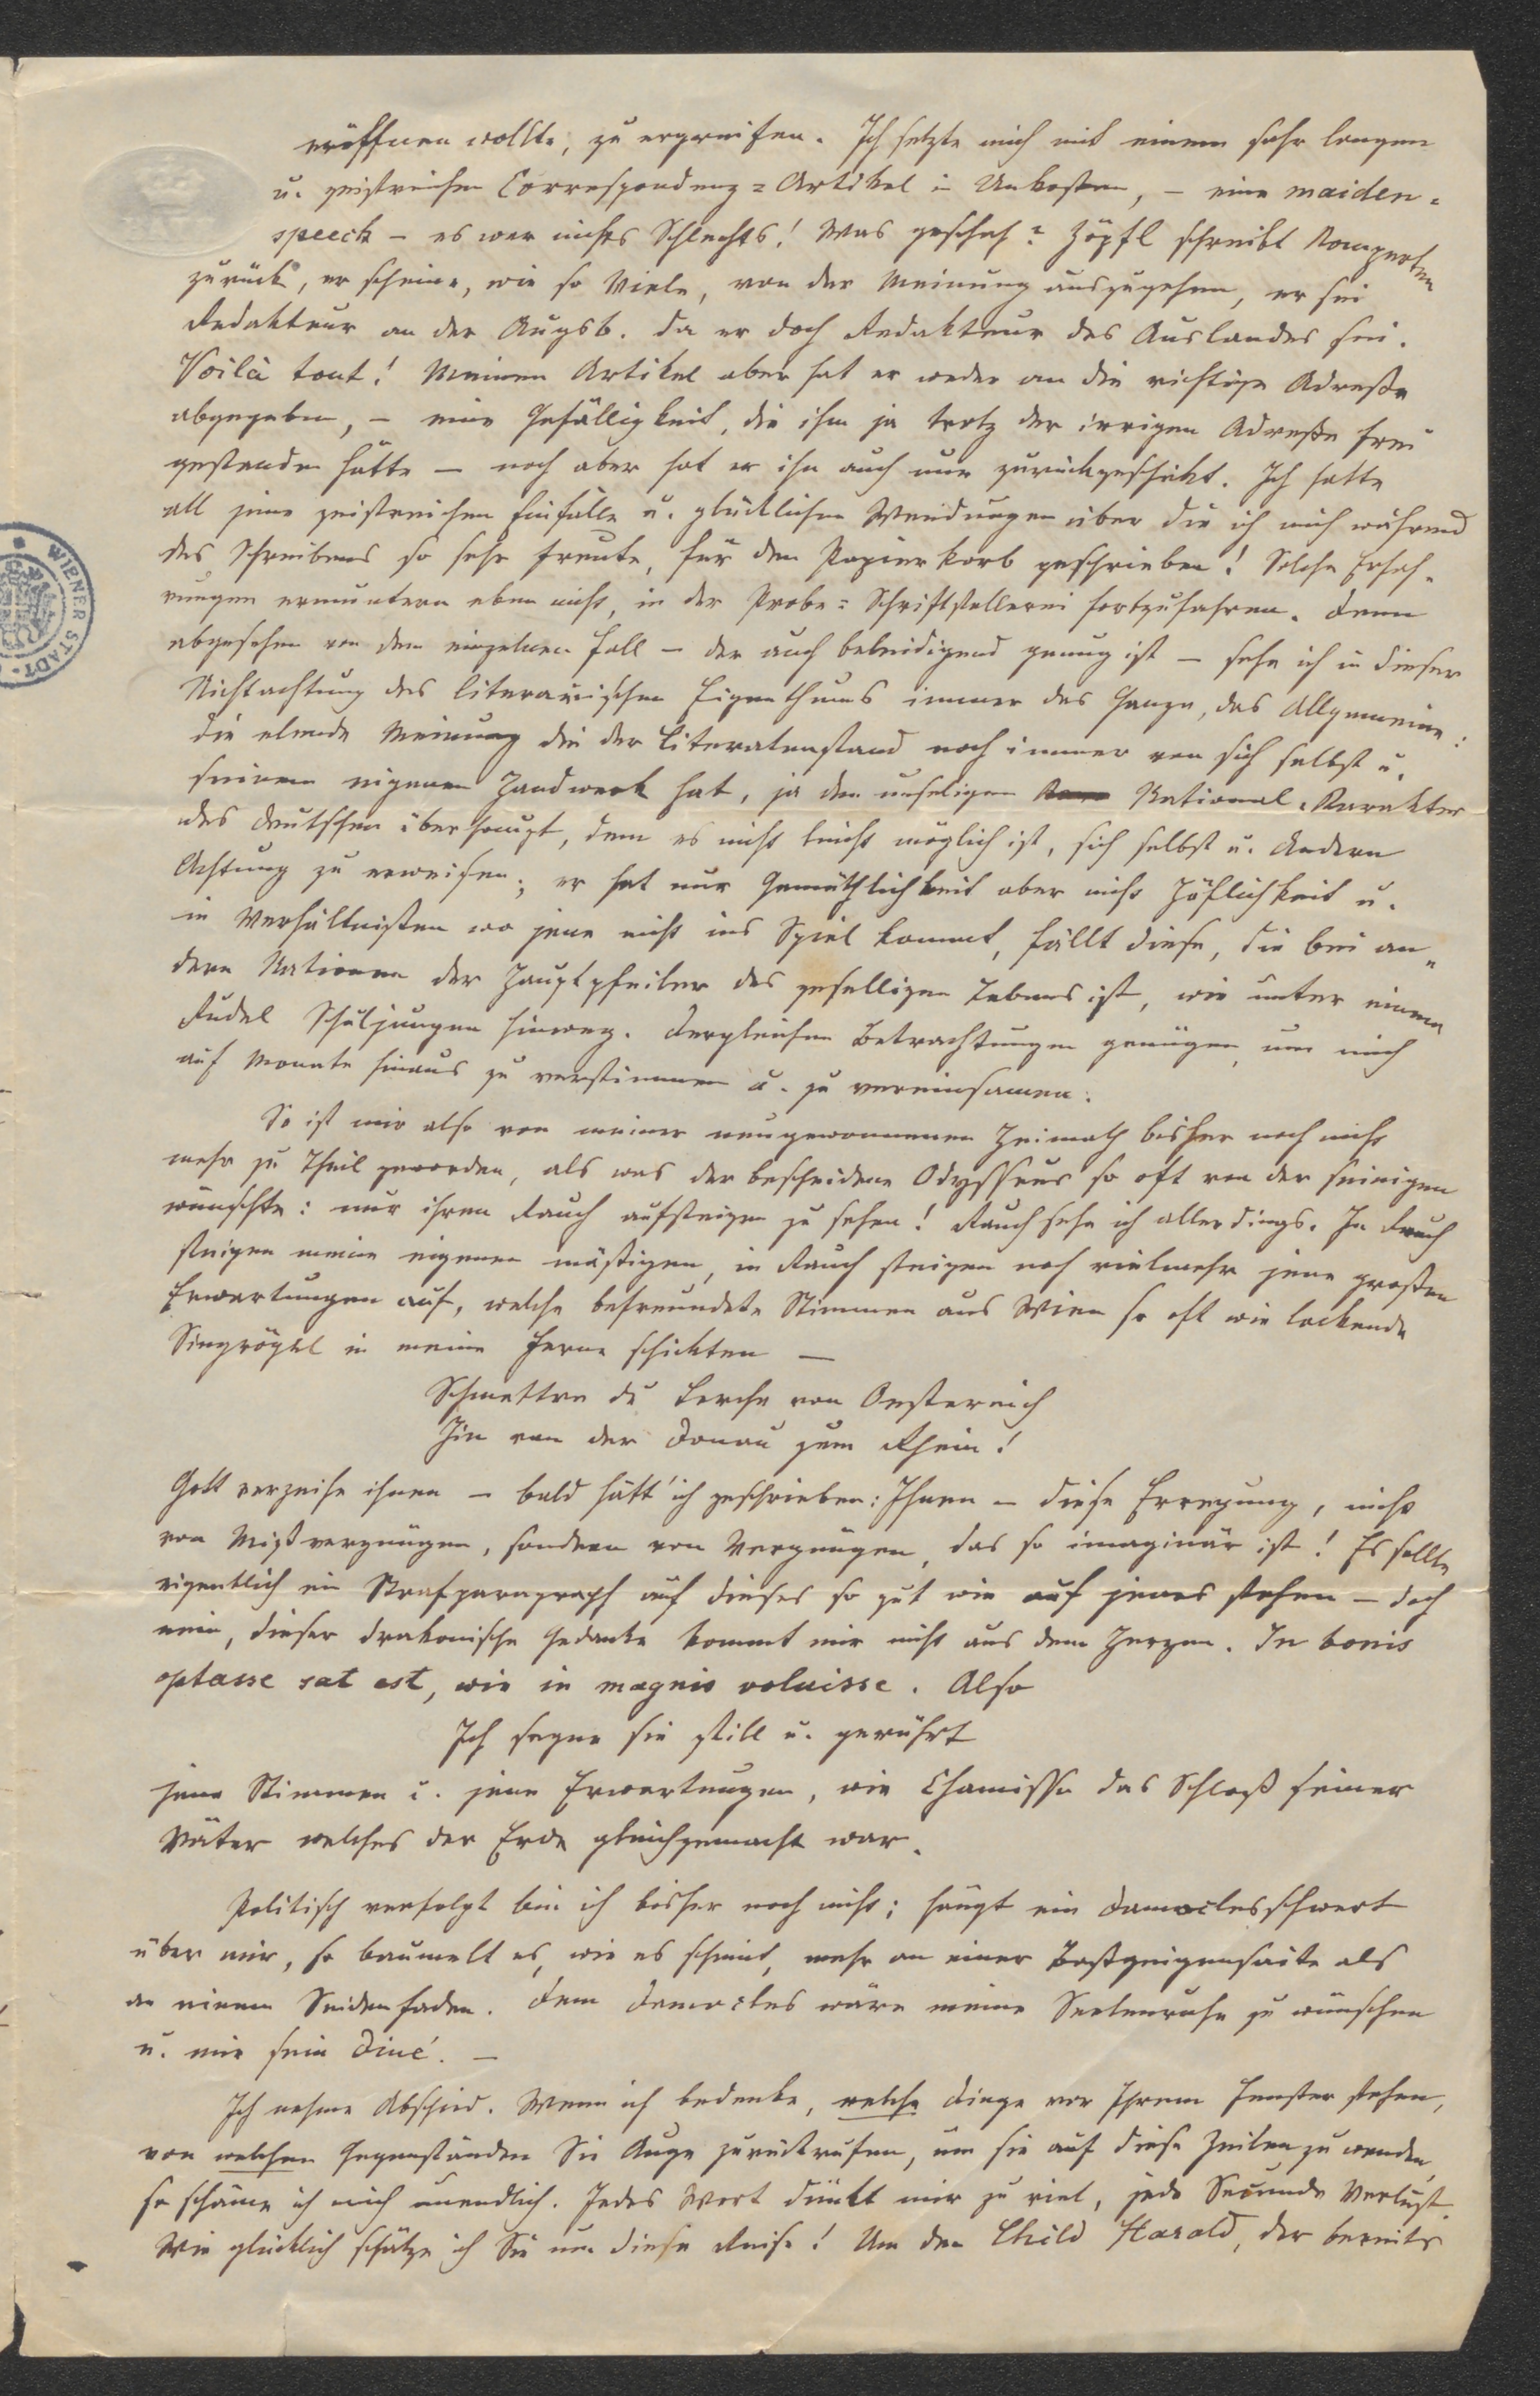 eröffnen wollte, zu ergreifen. Ich setzte mich mit einem sehr langen
u. geistreichen Correspondenz=Artikel in Unkosten, – eine maiden=
speech – es war nichts Schlechts! Was geschah? Zöpfl schreibt Komperten
zurück, er scheine, wie so Viele, von der Meinung auszugehen, er sei
Redakteur an der Augsb. da er doch Redakteur des Auslandes sei.
Voilà tout! Meinen Artikel aber hat er weder an die richtige Adreße
abgegeben, – eine Gefälligkeit, die ihm ja trotz der irrigen Adreße frei
gestanden hätte – noch aber hat er ihn auch nur zurückgeschikt. Ich hatte
all jene geistreichen Einfälle u. glücklichen Wendungen über die ich mich während
des Schreibens so sehr freute, für den Papierkorb geschrieben! Solche Erfah=
rungen ermuntern eben nicht, in der Probe=Schriftstellerei fortzufahren. Denn
abgesehen von dem einzelnen Fall – der auch beleidigend genug ist – sehe ich in dieser
Nichtachtung des literarischen Eigenthums immer das Ganze, das Allgemeine:
die elende Meinung die der Literatenstand noch immer von sich selbst u.
seinem eigenen Handwerk hat, ja den unseligen National=Karakter
des Deutschen überhaupt, dem es nicht leicht möglich ist, sich selbst u. Andern
Achtung zu erweisen; er hat nur Gemüthlichkeit aber nicht Höflichkeit u.
in Verhältnißen wo jene nicht ins Spiel kommt, fällt diese, die bei an=
dern Nationen der Hauptpfeiler des geselligen Lebens ist, wie unter einem
Rudel Schuljungen hinweg. Dergleichen Betrachtungen genügen, um mich
auf Monate hinaus zu verstimmen u. zu vereinsamen.
So ist mir also von meiner neugewonnenen Heimath bisher noch nicht
mehr zu Theil geworden, als was der bescheidene Odysseus so oft von der seinigen
wünschte: nur ihren Rauch aufsteigen zu sehen! Rauch sehe ich allerdings. In Rauch
steigen meine eigenen mäßigen, in Rauch steigen noch vielmehr jene großen
Erwartungen auf, welche befreundete Stimmen aus Wien so oft wie lockende
Singvögel in meine Ferne schickten –
Schmettre du Lerche von Oesterreich
Hin von der Donau zum Rhein!
Gott verzeihe ihnen – bald hätt' ich geschrieben: Ihnen – diese Erregung, nicht
von Mißvergnügen, sondern von Vergnügen, das so imaginär ist! Es sollte
eigentlich ein Strafparagraph auf dieses so gut wie auf jenes stehen – doch
nein, dieser drakonische Gedanke kommt mir nicht aus dem Herzen. In bonis
optasse sat est, wie in magnis voluisse. Also
Ich segne sie still u. gerührt
jene Stimmen u. jene Erwartungen, wie Chamisso das Schloß seiner
Väter welches der Erde gleichgemacht war.
Politisch verfolgt bin ich bisher noch nicht; hängt ein Damoclesschwert
über mir, so baumelt es, wie es scheint, mehr an einer Baßgeigensaite als
an einem Seidenfaden. Dem Damocles wäre meine Seelenruhe zu wünschen
u. mir sein Diné. –
Ich nehme Abschied. Wenn ich bedenke, welche Dinge vor Ihrem Fenster stehen,
von welchen Gegenständen Sie Auge zurückrufen, um sie auf diese Zeilen zu wenden,
so schäme ich mich unendlich. Jedes Wort dünkt mir zu viel, jede Secunde Verlust.
Wie glücklich schätze ich Sie um diese Reise! Um den Child Harald, der bereits
WIENER STADT-